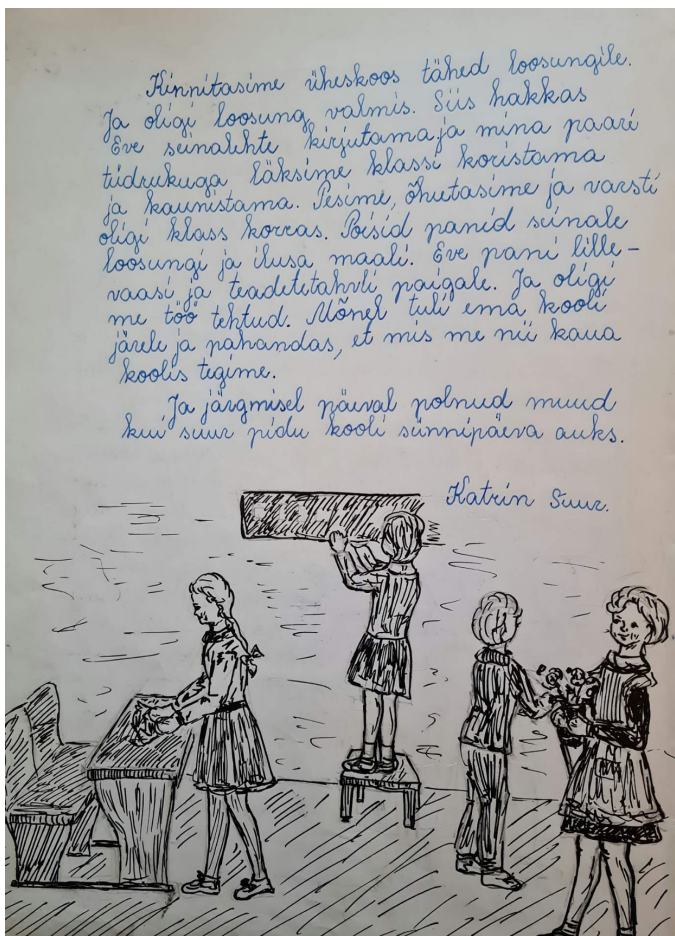 Kinnitasime üheskoos tähed loosungile.
Ja oligi loosung valmis. Siis hakkas
Eve seinalehte kirjutama ja mina paari
tüdrukuga läksime klassi koristama
ja kaunistama. Pesime, õhutasime ja varsti
oligi klass korras. Poisid panid seinale
loosungi ja ilusa maali. Eve pani lille-
vaasi ja teadetetahvli paigale. Ja oligi
me töö tehtud. Mõnel tuli ema kooli
järele ja pahandas, et mis me nii kaua
koolis tegime.
Ja järgmisel päeval polnud muud
kui suur pidu kooli sünnipäeva auks.
Katrin Suur.